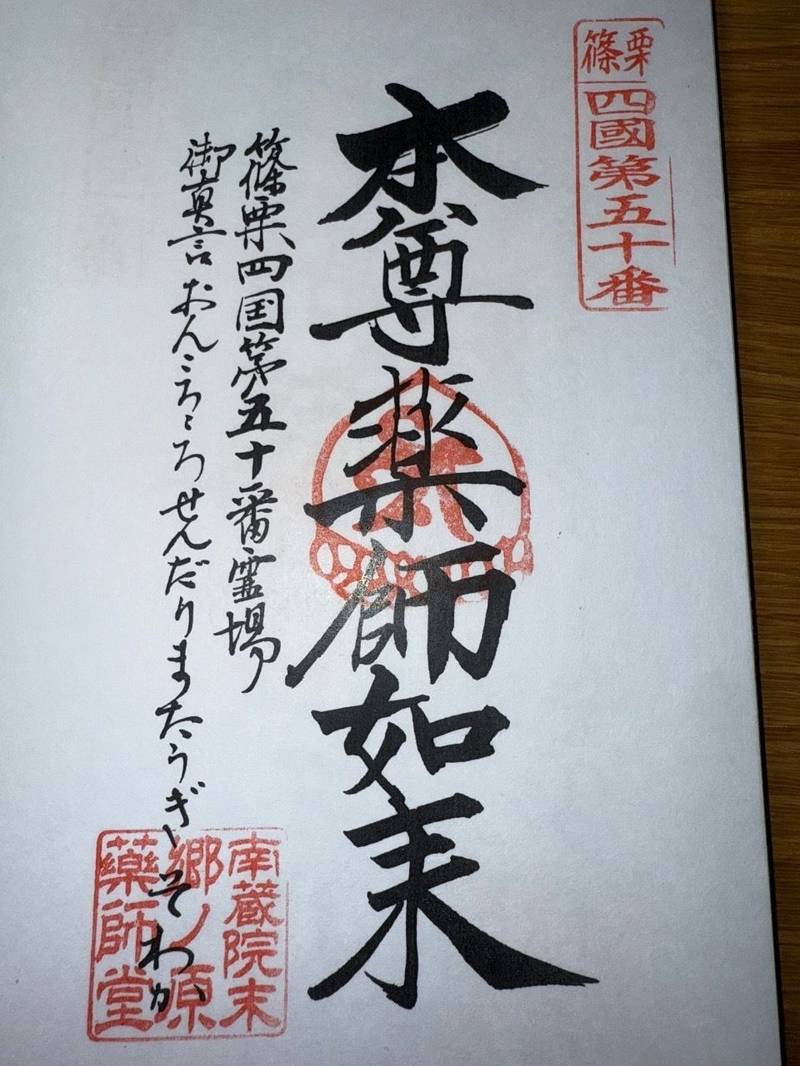 篠栗
四國第五十番
本尊薬師如来
篠栗四国第五十番霊場
御真言おんころころせんだりまたうぎそわか
南蔵院末
郷ノ原
藥師堂